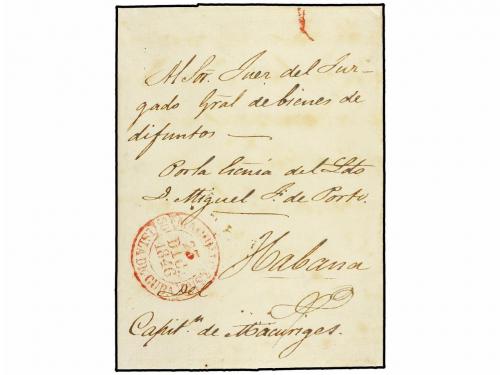 Al Sor. Juez del Juz-
gado Gral de bienes de
difuntos —
Por la Escnia del Ldo
D. Miguel J. de Porto.
Habana
Del
Capitn de Macuriges.
25
DIC.
1846
ISLA DE CUBA